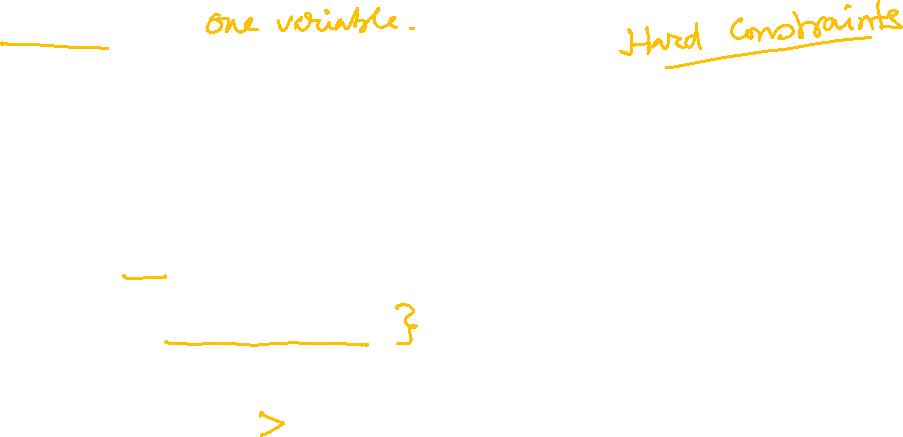 one variable.
Hard Constraints
}
>